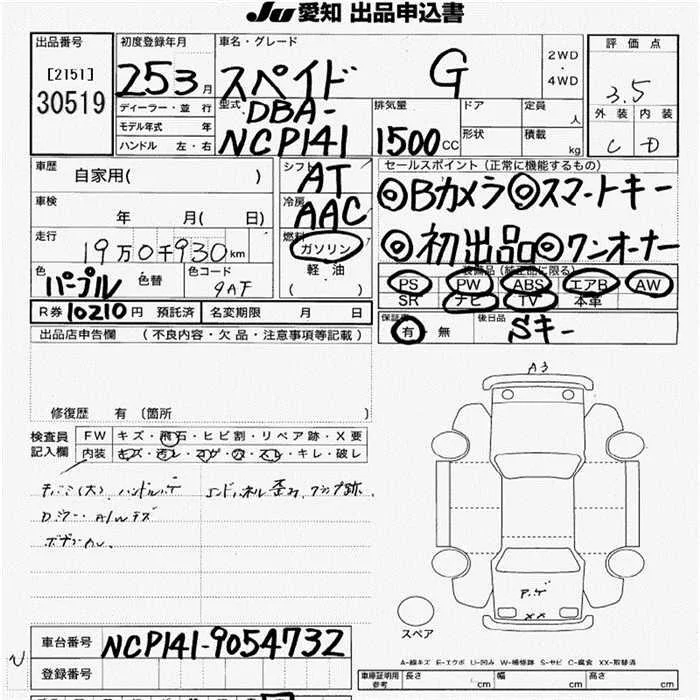 JU 愛知 出品申込書
出品番号
[2151]
30519
初度登録年月
25 3 月
ディーラー・並 行
モデル年式 年
ハンドル 左・右
車名・グレード
スペイド G
2WD
・
4WD
型式
DBA-
NCP141
排気量
1500 CC
ドア
定員
人
形状
積載
kg
評 価 点
3.5
外 装 内 装
C D
車歴
自家用( )
車検
年 月( 日)
走行
19万0千930 km
色
パープル
色替
色コード
9AF
シフト
AT
冷房
AAC
燃料
ガソリン
軽 油
( )
セールスポイント (正常に機能するもの)
◎Bカメラ◎スマートキー
◎初出品◎ワンオーナー
装備品 (純正品に限る)
PS PW ABS エアB AW
SR ナビ TV 本革
R券 10210 円 預託済
名変期限 月 日
保証書
有 無
後日品
Sキー
出品店申告欄 (不良内容・欠 品・注意事項等記載)
修復歴 有 〔箇所 〕
検査員
記入欄
FW キズ・飛石・ヒビ割・リペア跡・X 要
内装 キズ・汚レ・コゲ・穴・スレ・キレ・破レ
A3
XX
スペア
A-線キズ E-エクボ U-凹み W-補修跡 S-サビ C-腐食 XX-取替済
車台番号
NCP141-9054732
登録番号
車庫証明用
参考
長さ cm
幅 cm
高さ cm